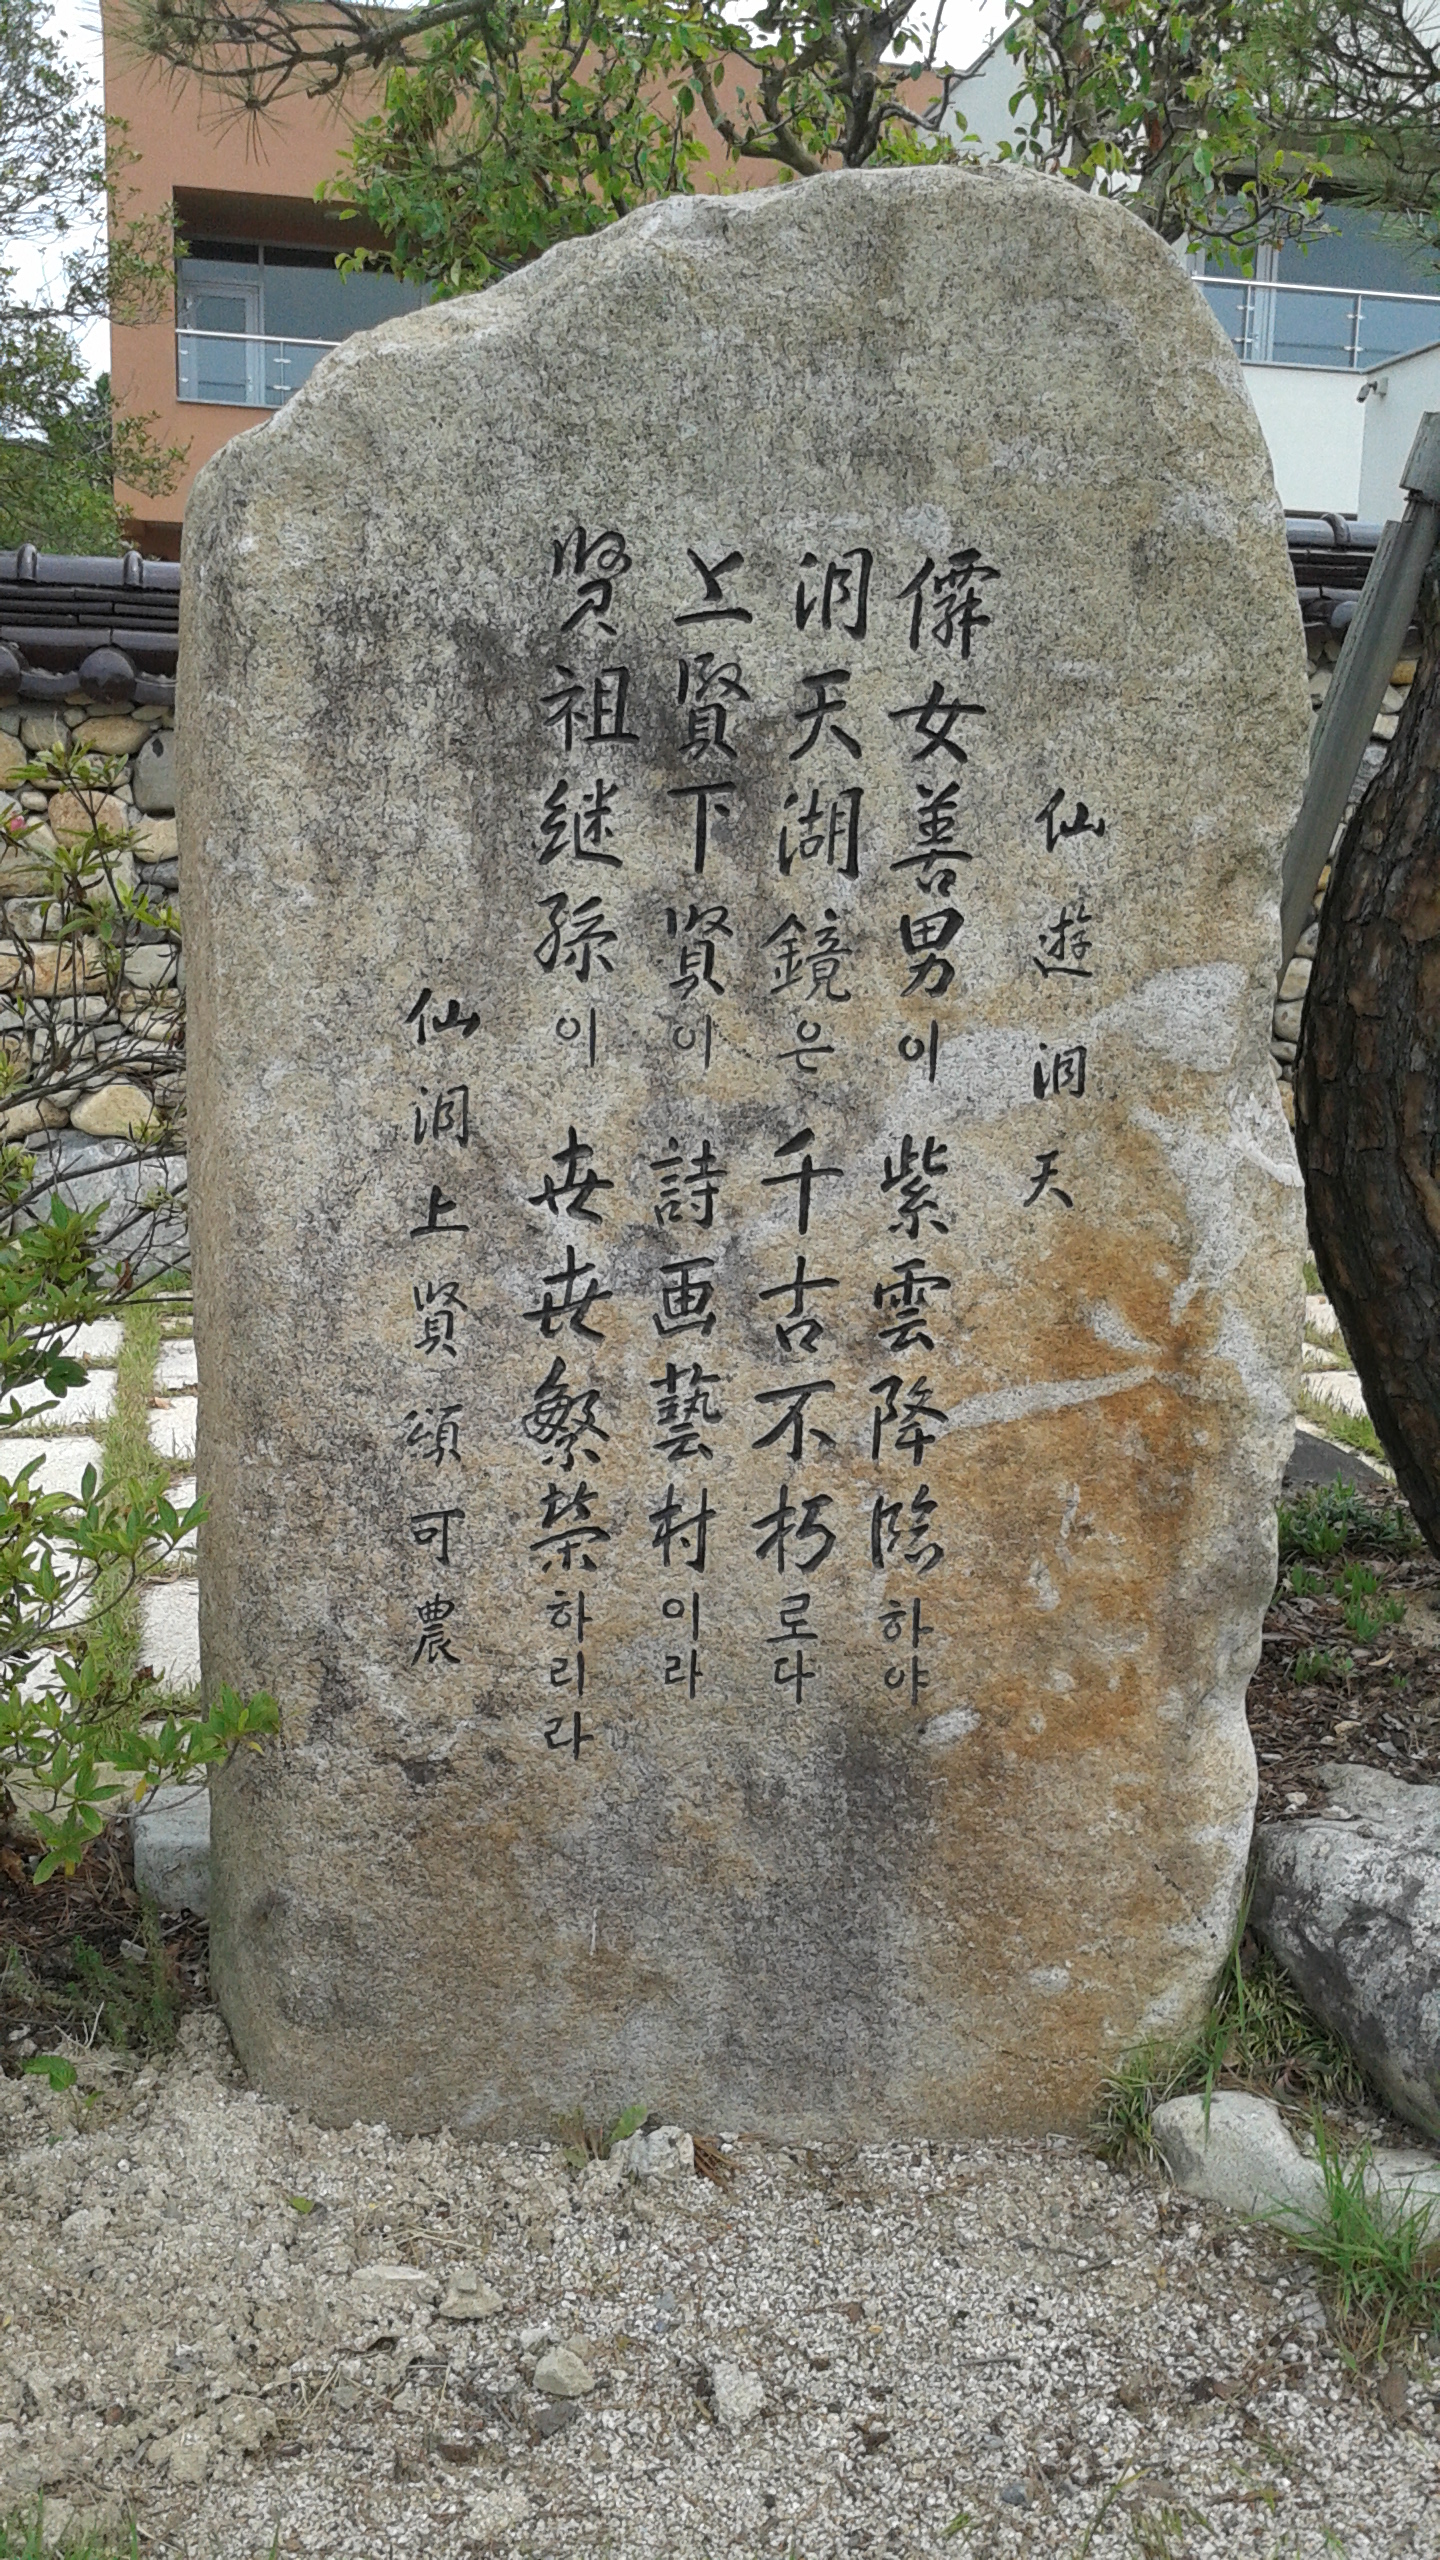 仙遊洞天
僊女善男이 紫雲降臨하야
洞天湖鏡은 千古不朽로다
上賢下賢이 詩画藝村이라
賢祖継孫이 世世繁榮하리라
仙洞上賢頌 可農